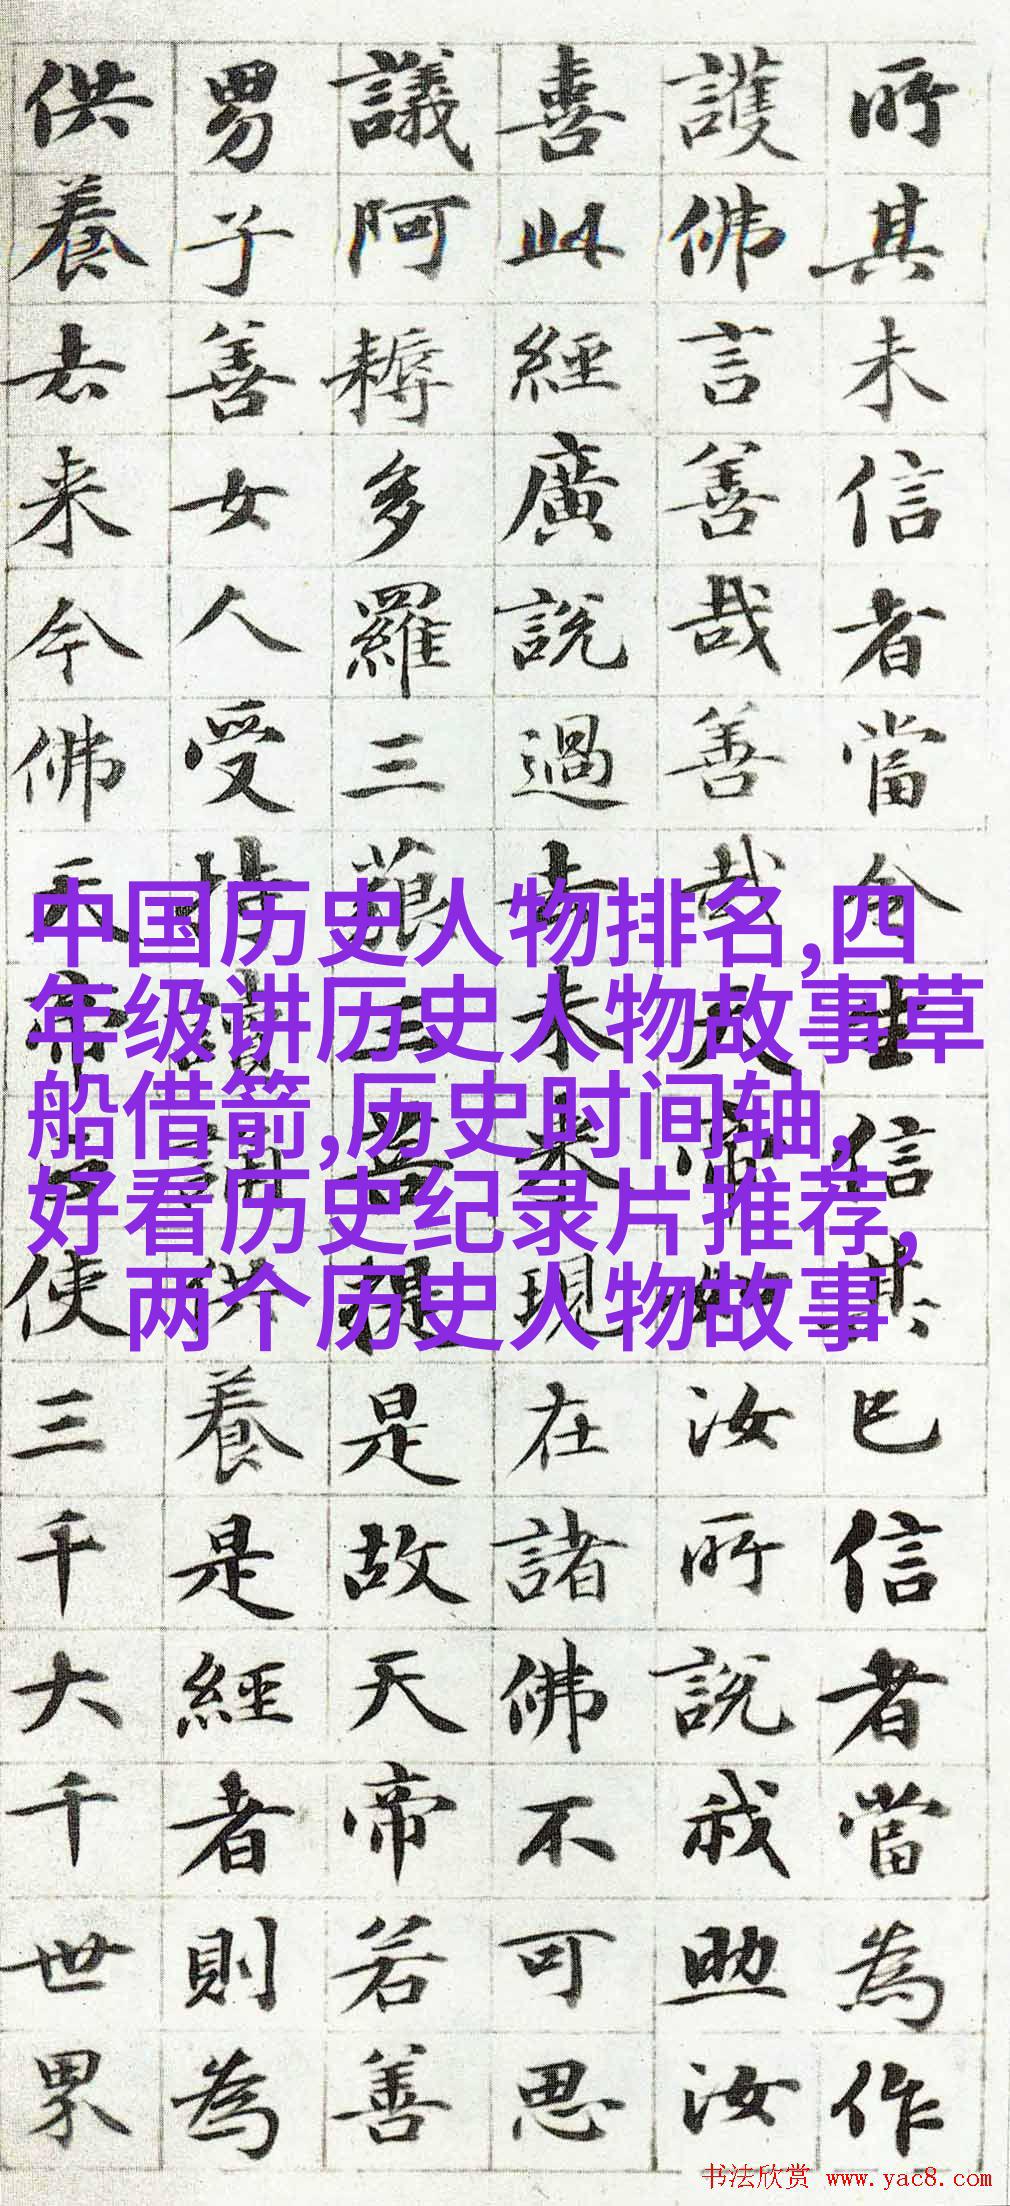 所其未信者當令生信其已信者當為作
護佛言善哉善哉天帝如汝所說我助汝
喜此經廣說過去未來現在諸佛不可思
議阿耨多羅三藐三菩提是故天帝若善
男子善女人受持讀誦供養是經者則為
供養去来今佛天帝正使三千大千世界
中国历史人物排名,四
年级讲历史人物故事草
船借箭,历史时间轴,
好看历史纪录片推荐,
两个历史人物故事
书法欣赏 www.yac8.com